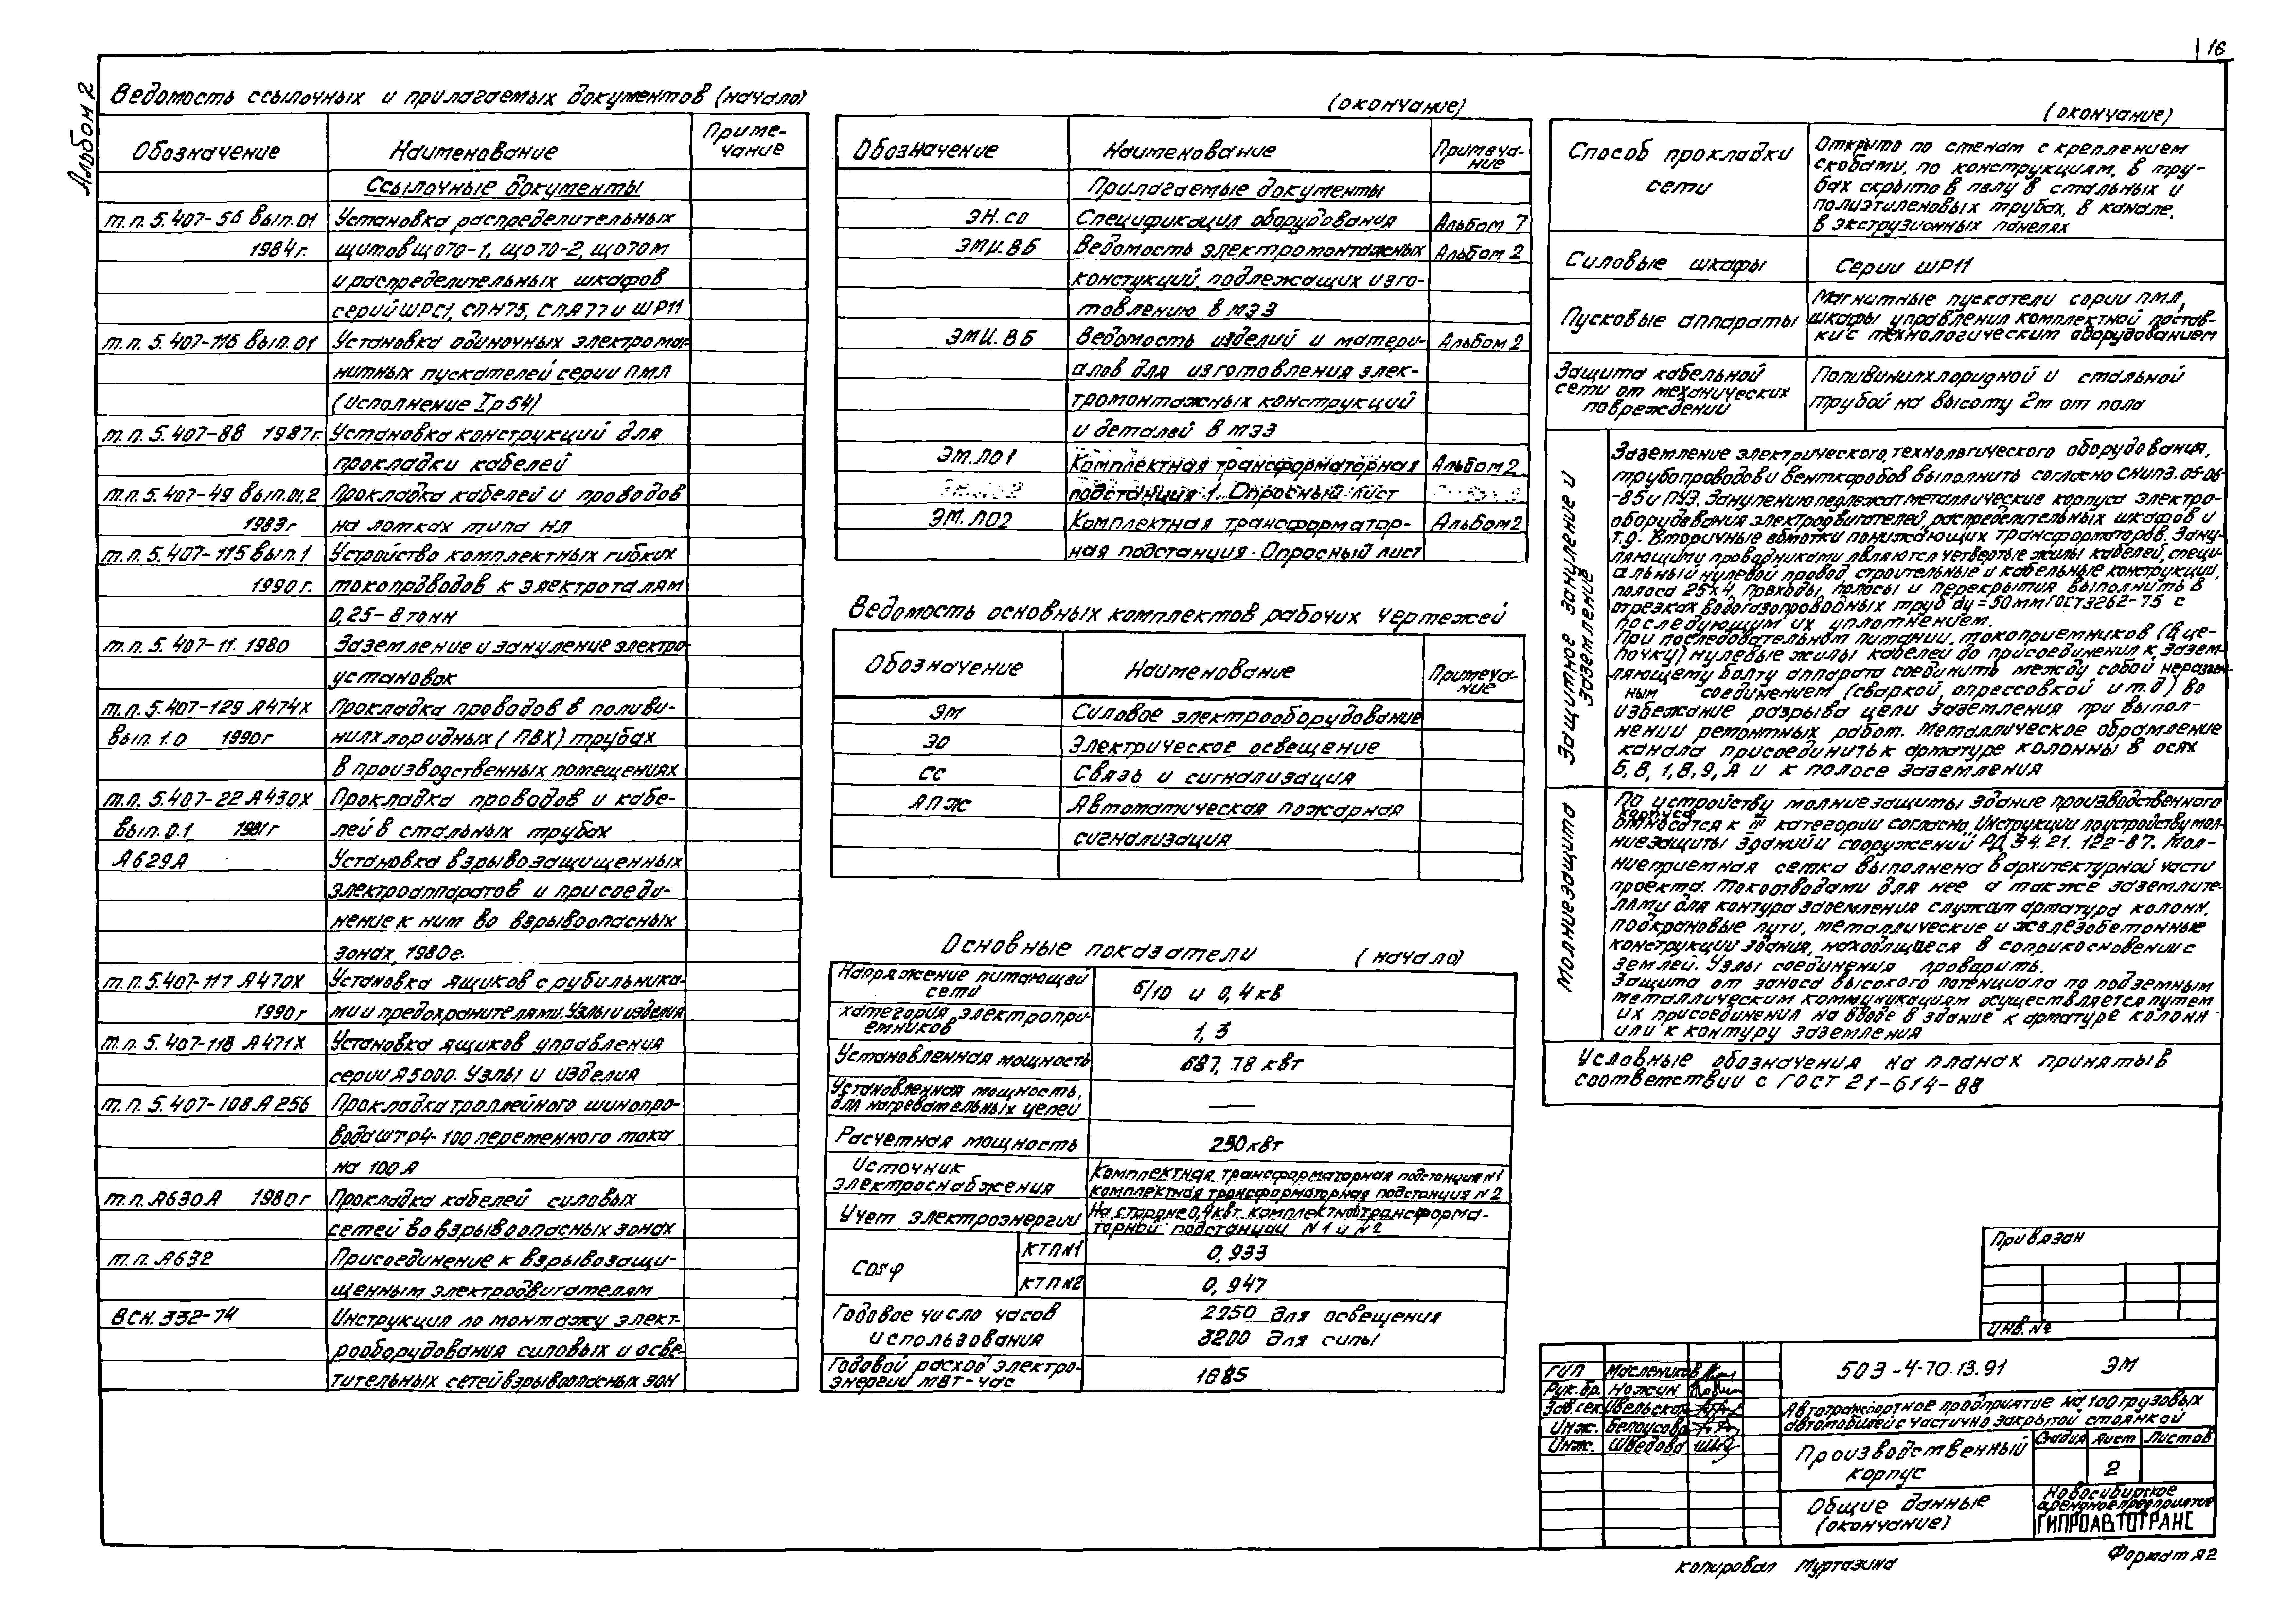 16
Альбом 2
Ведомость ссылочных и прилагаемых документов (начало)
Обозначение Наименование Приме-
чание
Ссылочные документы
т.п.5.407-56 вып.01 Установка распределительных
1984г. щитов що70-1, що70-2, що70м
и распределительных шкафов
серий ШРС1, СПН75, СПА77 и ШР11
т.п.5.407-116 вып.01 Установка одиночных электромаг
нитных пускателей серии ПМЛ
(исполнение Ip54)
т.п.5.407-88 1987г. Установка конструкций для
прокладки кабелей
т.п.5.407-49 вып.01,2 Прокладка кабелей и проводов
1983г на лотках типа НЛ
т.п.5.407-115 вып.1 Устройство комплектных гибких
1990г. токопроводов к электроталям
0,25-8 тонн
т.п.5.407-11.1980 Заземление и зануление электро-
установок
т.п.5.407-129 А474X Прокладка проводов в поливи-
вып.1.0 1990г нилхлоридных (ПВХ) трубах
в производственных помещениях
т.п.5.407-22 А430X Прокладка проводов и кабе-
вып.0.1 1981г лей в стальных трубах
А629А Установка взрывозащищенных
электроаппаратов и присоеди-
нение к ним во взрывоопасных
зонах, 1980г.
т.п.5.407-117 А470X Установка ящиков с рубильника-
1990г ми и предохранителями. Узлы и изделия
т.п.5.407-118 А471X Установка ящиков управления
серии А5000. Узлы и изделия
т.п.5.407-108 А256 Прокладка троллейного шинопро-
вода штр4-100 переменного тока
на 100А
т.п.А630А 1980г Прокладка кабелей силовых
сетей во взрывоопасных зонах
т.п.А632 Присоединение к взрывозащи-
щенным электродвигателям
ВСН.332-74 Инструкция по монтажу элект-
рооборудования силовых и осве-
тительных сетей взрывоопасных зон
(окончание)
Обозначение Наименование Примеча-
ние
Прилагаемые документы
ЭН.СО Спецификация оборудования Альбом 7
ЭМИ.ВБ Ведомость электромонтажных Альбом 2
констукций, подлежащих изго-
товлению в МЭЗ
ЭМИ.ВБ Ведомость изделий и матери- Альбом 2
алов для изготовления элек-
тромонтажных конструкций
и деталей в МЭЗ
ЭМ.ЛО1 Комплектная трансформаторная Альбом 2
подстанция 1. Опросный лист
ЭМ.ЛО2 Комплектная трансформатор- Альбом 2
ная подстанция. Опросный лист
Ведомость основных комплектов рабочих чертежей
Обозначение Наименование Примеча-
ние
ЭМ Силовое электрооборудование
ЭО Электрическое освещение
СС Связь и сигнализация
АПЖ Автоматическая пожарная
сигнализация
Основные показатели (начало)
Напряжение питающей
сети 6/10 и 0,4кв
категория электропри-
емников 1, 3
Установленная мощность 687,78 квт
Установленная мощность,
для нагревательных целей —
Расчетная мощность 250 квт
Источник
электроснабжения Комплектная трансформаторная подстанция N1
комплектная трансформаторная подстанция N2
Учет электроэнергии На стороне 0,4квт комплектной трансформа-
торной подстанции N1 и N2
cosφ КТПN1 0,933
КТПN2 0,947
Годовое число часов 2250 для освещения
использования 3200 для силы
Годовой расход электро-
энергии мвт-час 1085
(окончание)
Способ прокладки
сети
Открыто по стенам с креплением
скобами, по конструкциям, в тру-
бах скрыто в полу в стальных и
полиэтиленовых трубах, в канале,
в экструзионных панелях
Силовые шкафы Серии ШР11
Пусковые аппараты
Магнитные пускатели сории ПМЛ,
шкафы управления комплектной постав-
ки с технологическим оборудованием
Защита кабельной
сети от механических
повреждений
Поливинилхлоридной и стальной
трубой на высоту 2м от пола
Защитное зануление и
заземление
Заземление электрического, технологического оборудования,
трубопроводов и венткоробов выполнить согласно СНиП3.05-06-
-85 и ПУЭ. Занулению подлежат металлические корпуса электро-
оборудования электродвигателей, распределительных шкафов и
т.д. Вторичные обмотки понижающих трансформаторов. Зану-
ляющими проводниками являются четвертые жилы кабелей, специ-
альный нулевой провод, строительные и кабельные конструкции,
полоса 25х4. Проходы, полосы и перекрытия выполнить в
отрезках водогазопроводных труб dy=50мм ГОСТ3262-75 с
последующим их уплотнением.
При последовательном питании, токоприемников (в це-
почку) нулевые жилы кабелей до присоединения к зазем-
ляющему болту аппарата соединить между собой неразъем-
ным соединением (сваркой, опрессовкой и т.д) во
избежание разрыва цепи заземления при выпол-
нении ремонтных работ. Металлическое обрамление
канала присоединить к арматуре колонны в осях
Б,8, 1,8,9,А и к полосе заземления
Молниезащита
По устройству молниезащиты здание производственного
корпуса
относятся к III категории согласно „Инструкции по устройству мол-
ниезащиты зданий и сооружений РД 34.21.122-87. Мол-
ниеприемная сетка выполнена в архитектурной части
проекта. Токоотводами для нее а также заземлите-
лями для контура заземления служат арматура колонн,
подкрановые пути, металлические и железобетонные
конструкции здания, находящиеся в соприкосновении с
землей. Узлы соединения проварить.
Защита от заноса высокого потенциала по подземным
металлическим коммуникациям осуществляется путем
их присоединения на вводе в здание к арматуре колонн
или к контуру заземления
Условные обозначения на планах приняты в
соответствии с ГОСТ 21-614-88
Привязан
Инв.№
503-4-70.13.91 ЭМ
ГИП Маслеников
Рук.бр. Ножкин
Зав.сек.
Инж. Белоусова
Инж. Шведова
Автотранспортное продприятие на 100 грузовых
автомобилей с частично закрытой стоянкой
Производственный
корпус
Стадия Лист Листов
2
Общие данные
(окончание)
Новосибирское
арендное предприятие
ГИПРОАВТОТРАНС
копировал Муртазина
Формат А2